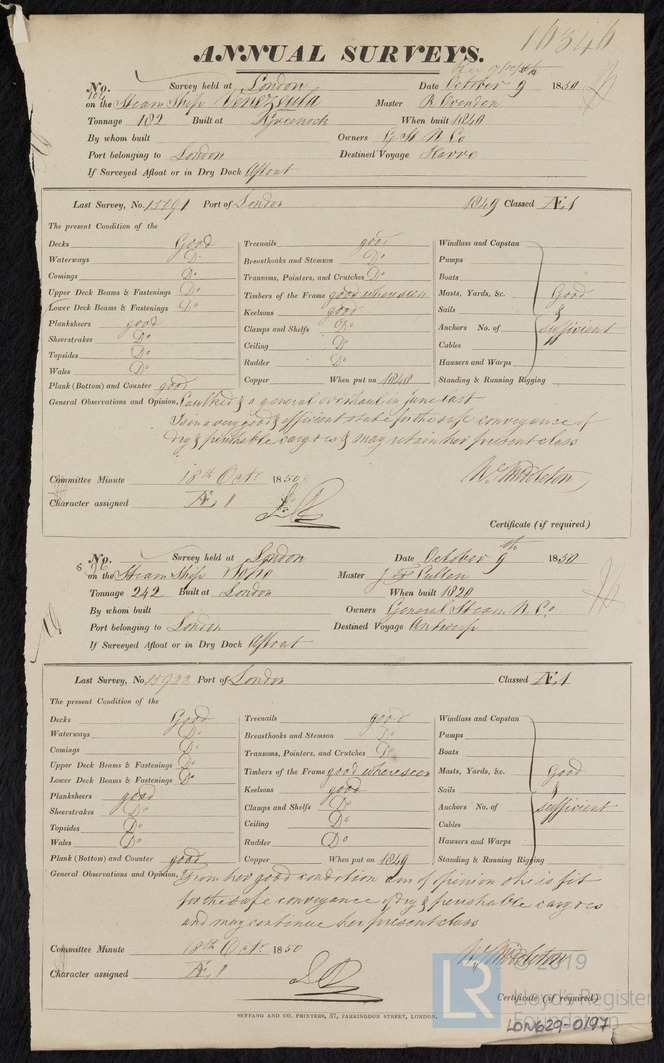 16346
ANNUAL SURVEYS.
No. Survey held at London Date October 9 1850
on the Steam Ship Venezuela Master R. Ovenden
Tonnage 182 Built at Greenock When built 1840
By whom built Owners G St N Co
Port belonging to London Destined Voyage Havre
If Surveyed Afloat or in Dry Dock Afloat
Last Survey, No. 15791 Port of London 1849 Classed Æ1
The present Condition of the
Decks Good
Waterways Do
Comings Do
Upper Deck Beams & Fastenings Do
Lower Deck Beams & Fastenings Do
Planksheers good
Sheerstrakes Do
Topsides Do
Wales Do
Plank (Bottom) and Counter good
Treenails good
Breasthooks and Stemson Do
Transoms, Pointers, and Crutches Do
Timbers of the Frame good where seen
Keelsons good
Clamps and Shelfs Do
Ceiling Do
Rudder Do
Copper When put on 1848
Windlass and Capstan
Pumps
Boats
Masts, Yards, &c. Good
Sails &
Anchors No. of sufficient
Cables
Hausers and Warps
Standing & Running Rigging
General Observations and Opinion, Caulked & a general overhaul in June last
Is in a very good & efficient state for the safe conveyance of
dry & perishable cargoes & may retain her present class
Wm Middleton
Committee Minute 18th Octr 1850
Character assigned Æ 1
Certificate (if required)
No. Survey held at London Date October 9th 1850
on the Steam Ship Master J F Cullen
Tonnage 242 Built at London When built 1820
By whom built Owners General Steam N. Co.
Port belonging to London Destined Voyage Antwerp
If Surveyed Afloat or in Dry Dock Afloat
Last Survey, No. 15922 Port of London Classed Æ1
The present Condition of the
Decks Good
Waterways Do
Comings Do
Upper Deck Beams & Fastenings Do
Lower Deck Beams & Fastenings Do
Planksheers good
Sheerstrakes Do
Topsides Do
Wales Do
Plank (Bottom) and Counter good
Treenails good
Breasthooks and Stemson Do
Transoms, Pointers, and Crutches Do
Timbers of the Frame good where seen
Keelsons good
Clamps and Shelfs Do
Ceiling Do
Rudder Do
Copper When put on 1849
Windlass and Capstan
Pumps
Boats
Masts, Yards, &c. Good
Sails &
Anchors No. of sufficient
Cables
Hausers and Warps
Standing & Running Rigging
General Observations and Opinion, From her good condition am of opinion she is fit
for the safe conveyance of dry & perishable cargoes
and may continue her present class
Wm Middleton
Committee Minute 18th Octr 1850
Character assigned Æ 1
Certificate (if required)
SEYFANG AND CO. PRINTERS, 57, FARRINGDON STREET, LONDON.
LR © 2019
Lloyd's Register
Foundation
LON629-0197